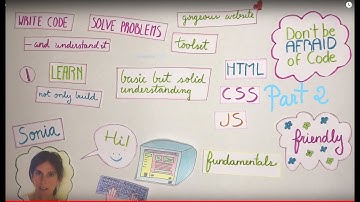 WRITE CODE
SOLVE PROBLEMS
gorgeous website
- and understand it
toolset
Don't be
AFRAID
of Code
! LEARN
not only build
basic but solid
understanding
HTML
CSS
JS
Part 2
Sonia
Hi!
fundamentals
friendly